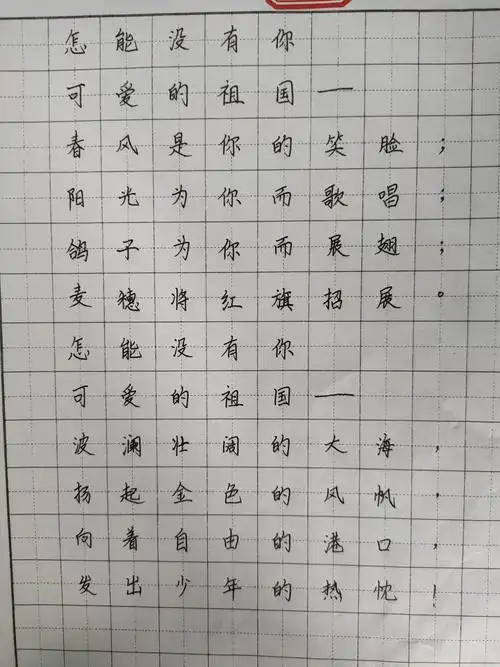 怎能没有你
可爱的祖国——
春风是你的笑脸；
阳光为你而歌唱；
鸽子为你而展翅；
麦穗将红旗招展。
怎能没有你
可爱的祖国——
波澜壮阔的大海，
扬起金色的风帆，
向着自由的港口，
发出少年的热忱！